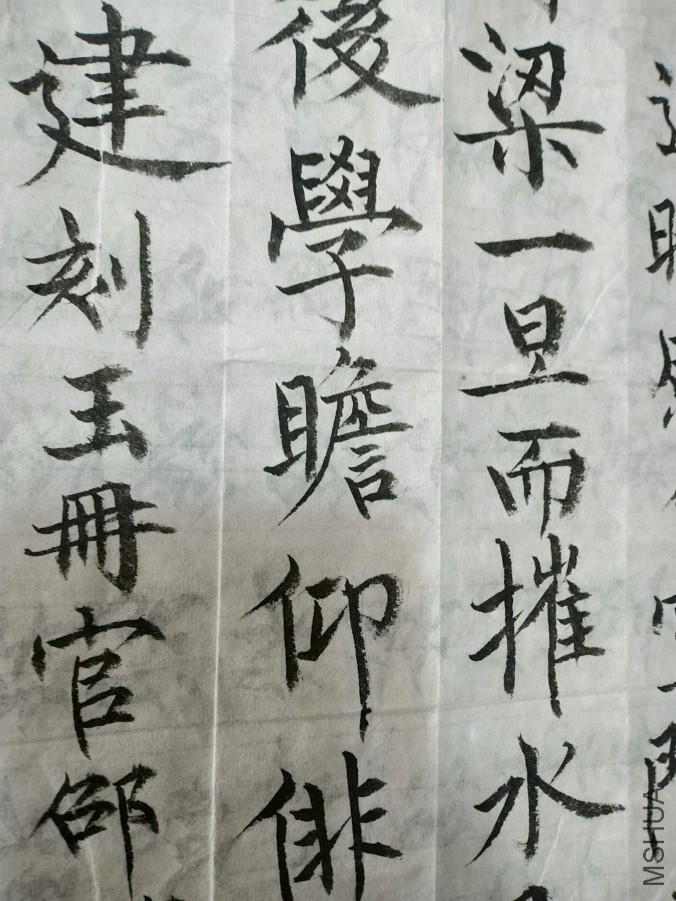 梁一旦而摧水
後學瞻仰俳
建刻玉冊官邵
MSHUA